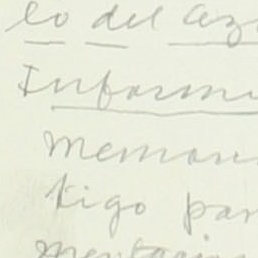 lo del az
Inform
memor
tigo par